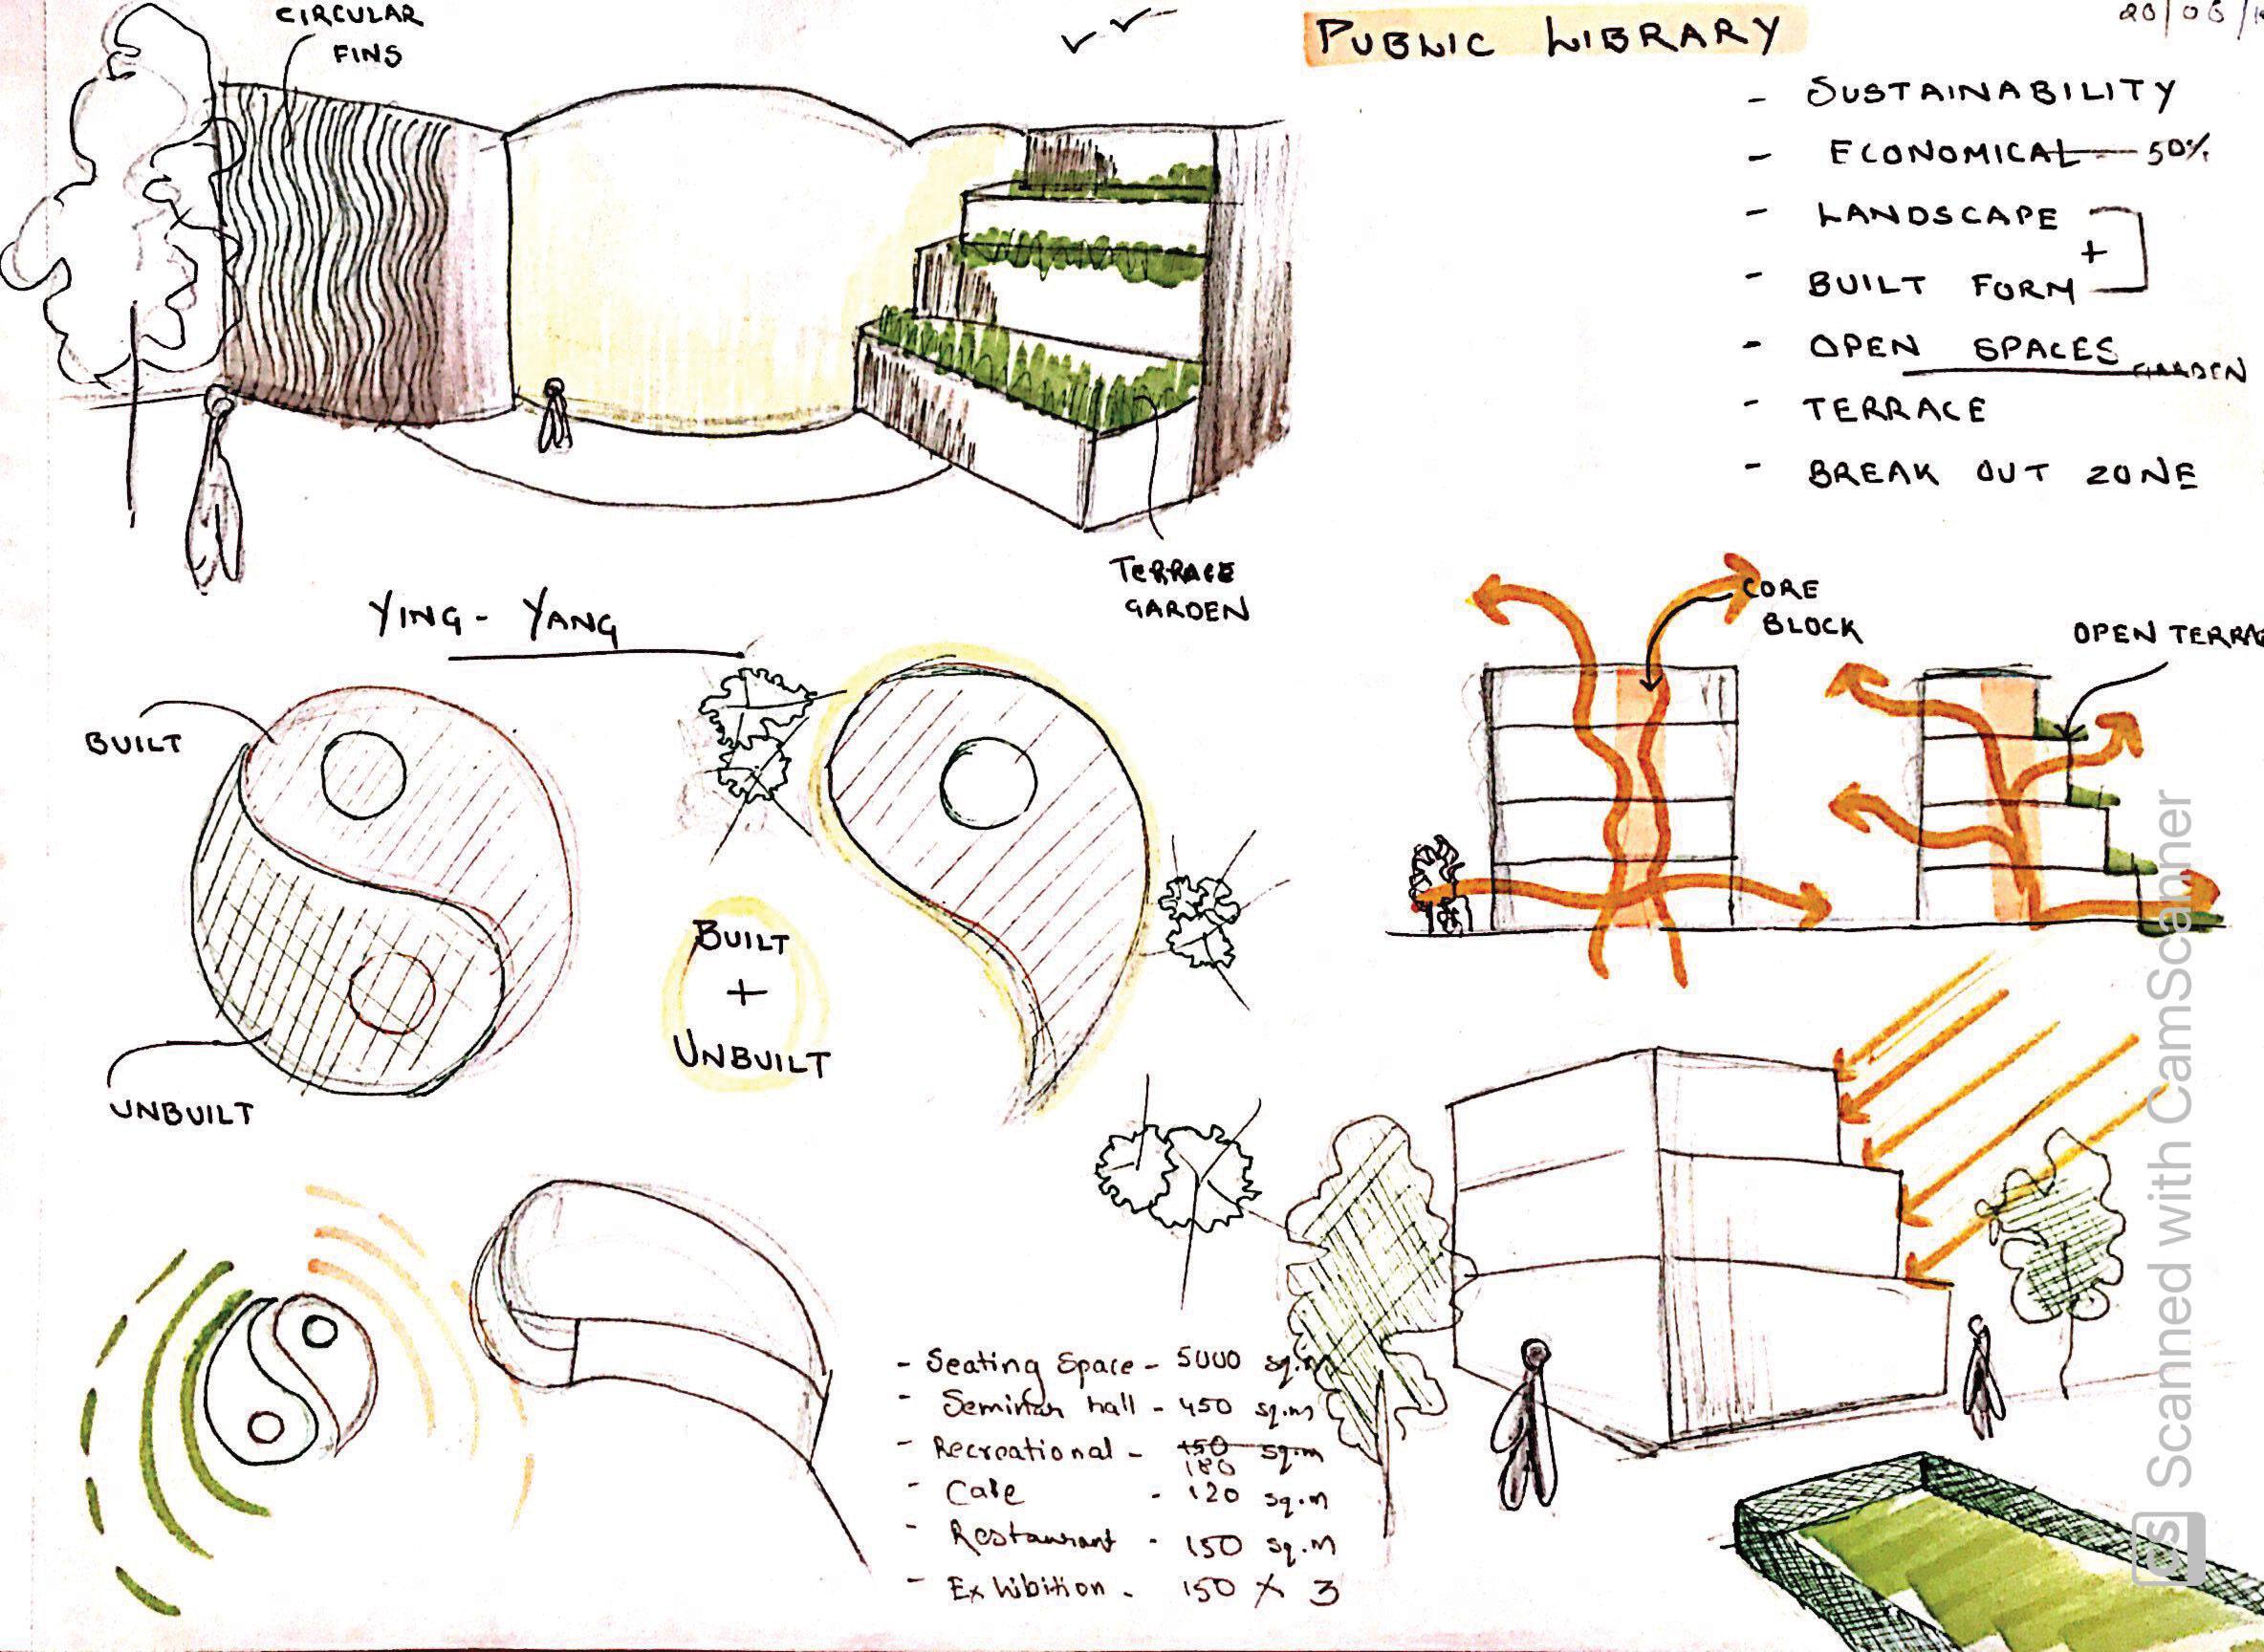 CIRCULAR
FINS
PUBLIC LIBRARY
- SUSTAINABILITY
- ECONOMICAL — 50%
- LANDSCAPE
+
- BUILT FORM
- OPEN SPACES
GARDEN
- TERRACE
- BREAK OUT ZONE
TERRACE
GARDEN
YING - YANG
BUILT
UNBUILT
BUILT
+
UNBUILT
CORE
BLOCK
OPEN TERRA
- Seating Space - 5000 sq.m
- Seminar hall - 450 sq.m
- Recreational - 150 sq.m
180
- Cafe - 120 sq.m
- Restaurant - 150 sq.m
- Exhibition - 150 X 3
CS Scanned with CamScanner